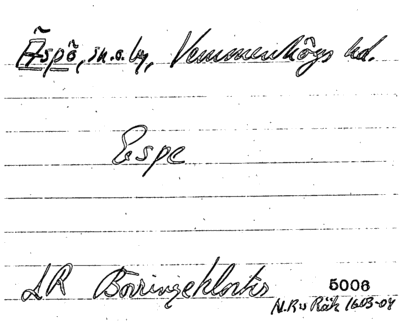 Äspö, sn. o. by, Vemmenhögs hd.
Espe
LR Börringekloster 5006
N.R:s Räk 1603-04